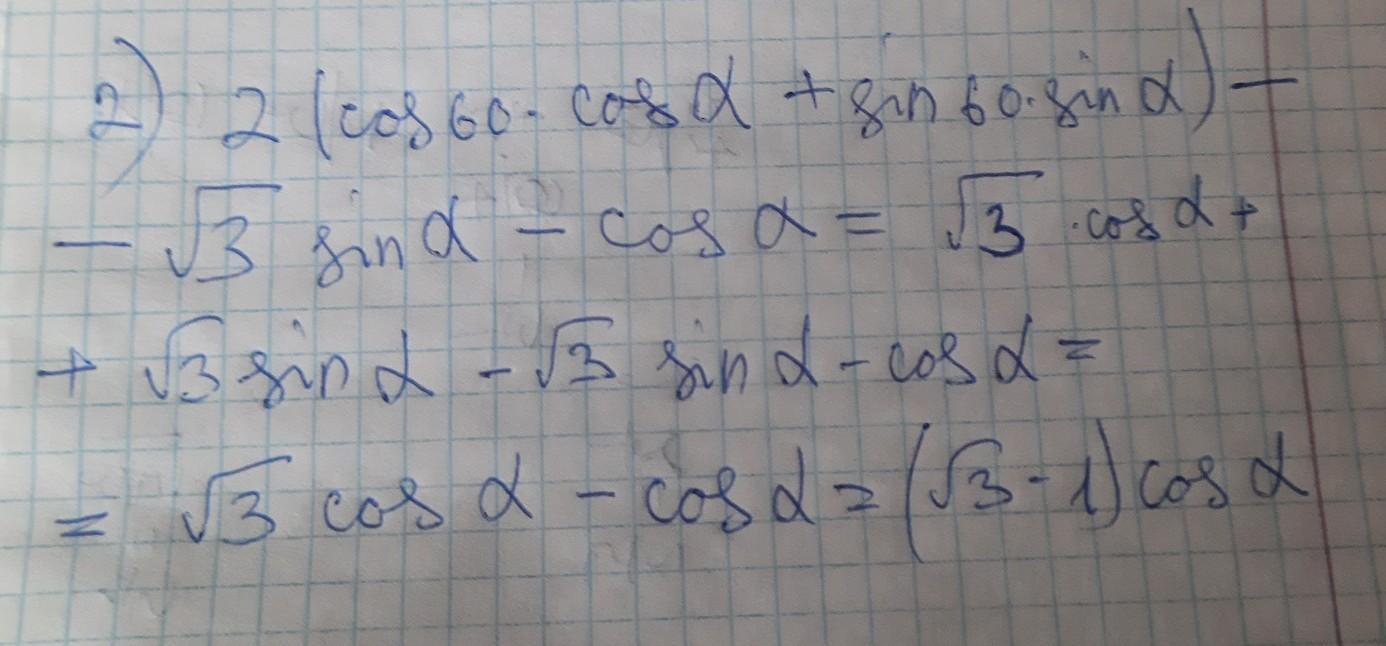 2) 2 (cos 60 · cos α + sin 60 · sin α) −
− √3 sin α − cos α = √3 · cos α +
+ √3 sin α − √3 sin α − cos α =
= √3 cos α − cos α = (√3 - 1) cos α